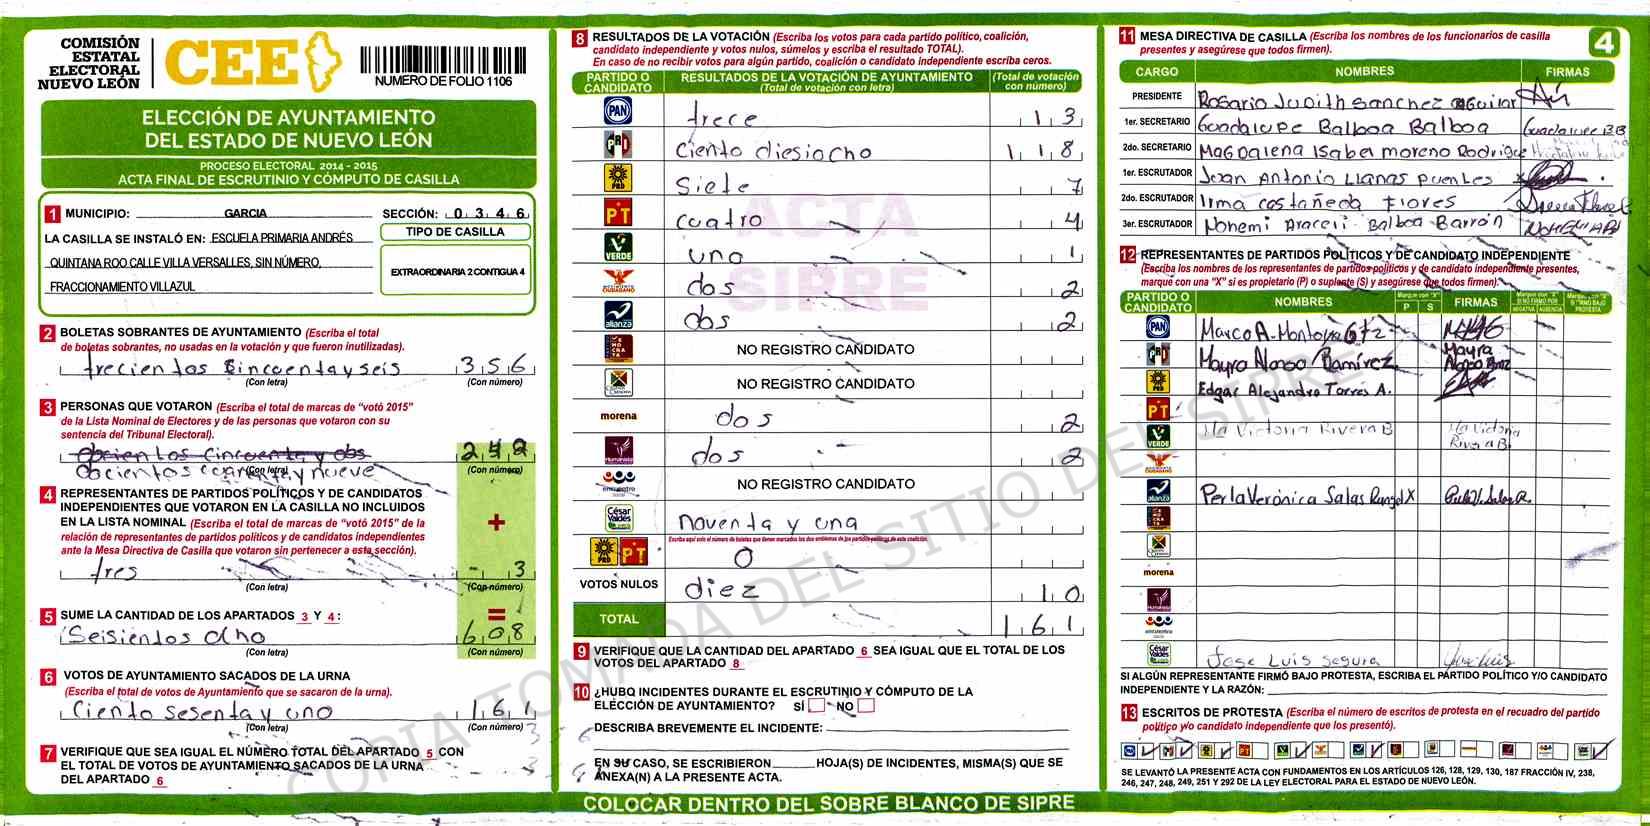 COMISIÓN
ESTATAL
ELECTORAL
NUEVO LEÓN
CEE
NUMERO DE FOLIO 1106
ELECCIÓN DE AYUNTAMIENTO
DEL ESTADO DE NUEVO LEÓN
PROCESO ELECTORAL 2014 - 2015
ACTA FINAL DE ESCRUTINIO Y CÓMPUTO DE CASILLA
1 MUNICIPIO: GARCIA SECCIÓN: 0 3 4 6
LA CASILLA SE INSTALÓ EN: ESCUELA PRIMARIA ANDRÉS
QUINTANA ROO CALLE VILLA VERSALLES, SIN NÚMERO,
FRACCIONAMIENTO VILLAZUL
TIPO DE CASILLA
EXTRAORDINARIA 2 CONTIGUA 4
2 BOLETAS SOBRANTES DE AYUNTAMIENTO (Escriba el total
de boletas sobrantes, no usadas en la votación y que fueron inutilizadas).
trecientos cincuenta y seis 3 5 6
(Con letra) (Con número)
3 PERSONAS QUE VOTARON (Escriba el total de marcas de "votó 2015"
de la Lista Nominal de Electores y de las personas que votaron con su
sentencia del Tribunal Electoral).
docientos cincuenta y dos
docientos cuarenta y nueve
(Con letra) (Con número)
4 REPRESENTANTES DE PARTIDOS POLÍTICOS Y DE CANDIDATOS
INDEPENDIENTES QUE VOTARON EN LA CASILLA NO INCLUIDOS
EN LA LISTA NOMINAL (Escriba el total de marcas de "votó 2015" de la
relación de representantes de partidos políticos y de candidatos independientes
ante la Mesa Directiva de Casilla que votaron sin pertenecer a esta sección).
+
tres - 3
(Con letra) (Con número)
5 SUME LA CANTIDAD DE LOS APARTADOS 3 Y 4: =
Seisientos ocho 6 0 8
(Con letra) (Con número)
6 VOTOS DE AYUNTAMIENTO SACADOS DE LA URNA
(Escriba el total de votos de Ayuntamiento que se sacaron de la urna).
Ciento sesenta y uno 1 6 1
(Con letra) (Con número)
7 VERIFIQUE QUE SEA IGUAL EL NÚMERO TOTAL DEL APARTADO 5 CON
EL TOTAL DE VOTOS DE AYUNTAMIENTO SACADOS DE LA URNA
DEL APARTADO 6
8 RESULTADOS DE LA VOTACIÓN (Escriba los votos para cada partido político, coalición,
candidato independiente y votos nulos, súmelos y escriba el resultado TOTAL).
En caso de no recibir votos para algún partido, coalición o candidato independiente escriba ceros.
PARTIDO O CANDIDATO RESULTADOS DE LA VOTACIÓN DE AYUNTAMIENTO (Total de votación con letra) (Total de votación con número)
PAN trece 1 3
PRI ciento diesiocho 1 1 8
PRD siete 7
PT cuatro 4
VERDE uno 1
MOVIMIENTO CIUDADANO dos 2
alianza dos 2
NO REGISTRO CANDIDATO
NO REGISTRO CANDIDATO
morena dos 2
Humanista dos 2
encuentro social NO REGISTRO CANDIDATO
César Valdés noventa y uno
Escriba aquí solo el número de boletas que tienen marcados los dos emblemas de los partidos políticos de esta coalición.
PRD PT 0
VOTOS NULOS diez 1 0
TOTAL 1 6 1
ACTA
SIPRE
9 VERIFIQUE QUE LA CANTIDAD DEL APARTADO 6 SEA IGUAL QUE EL TOTAL DE LOS
VOTOS DEL APARTADO 8
10 ¿HUBO INCIDENTES DURANTE EL ESCRUTINIO Y CÓMPUTO DE LA
ELECCIÓN DE AYUNTAMIENTO? SÍ NO
DESCRIBA BREVEMENTE EL INCIDENTE:
EN SU CASO, SE ESCRIBIERON HOJA(S) DE INCIDENTES, MISMA(S) QUE SE
ANEXA(N) A LA PRESENTE ACTA.
11 MESA DIRECTIVA DE CASILLA (Escriba los nombres de los funcionarios de casilla
presentes y asegúrese que todos firmen).
4
CARGO NOMBRES FIRMAS
PRESIDENTE Rosario Judith Sanchez Aguilar
1er. SECRETARIO Guadalupe Balboa Balboa Guadalupe B B
2do. SECRETARIO Magdalena Isabel Moreno Rodrigue
1er. ESCRUTADOR Juan Antonio Llanas Puentes
2do. ESCRUTADOR Irma Castañeda Flores
3er. ESCRUTADOR Nohemi Araceli Balboa Barrón
12 REPRESENTANTES DE PARTIDOS POLÍTICOS Y DE CANDIDATO INDEPENDIENTE
(Escriba los nombres de los representantes de partidos políticos y de candidato independiente presentes,
marque con una "X" si es propietario (P) o suplente (S) y asegúrese que todos firmen).
PARTIDO O CANDIDATO NOMBRES Marque con "X" P S FIRMAS Marque con "X" SI NO FIRMÓ POR NEGATIVA AUSENCIA Marque con "X" SI FIRMÓ BAJO PROTESTA
PAN Marco A. Montoya
PRI Mayra Alonso Ramírez Mayra Alonso
PRD Edgar Alejandro Torres A.
PT
VERDE Ma Victoria Rivera B Ma Victoria Rivera B
alianza Perla Verónica Salas Rangel X
morena
Humanista
encuentro social
César Valdés Jose Luis Segura Jose Luis
SI ALGÚN REPRESENTANTE FIRMÓ BAJO PROTESTA, ESCRIBA EL PARTIDO POLÍTICO Y/O CANDIDATO
INDEPENDIENTE Y LA RAZÓN:
13 ESCRITOS DE PROTESTA (Escriba el número de escritos de protesta en el recuadro del partido
político y/o candidato independiente que los presentó).
SE LEVANTÓ LA PRESENTE ACTA CON FUNDAMENTOS EN LOS ARTÍCULOS 126, 128, 129, 130, 187 FRACCIÓN IV, 238,
246, 247, 248, 249, 251 Y 292 DE LA LEY ELECTORAL PARA EL ESTADO DE NUEVO LEÓN.
COLOCAR DENTRO DEL SOBRE BLANCO DE SIPRE
COPIA TOMADA DEL SITIO DEL SIPRE